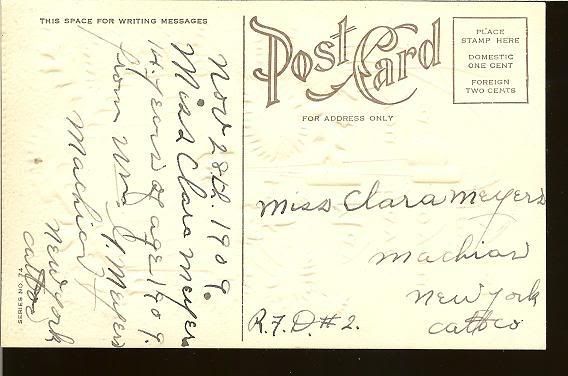 THIS SPACE FOR WRITING MESSAGES
Post Card
FOR ADDRESS ONLY
PLACE
STAMP HERE
DOMESTIC
ONE CENT
FOREIGN
TWO CENTS
Nov 28th. 1909.
Miss Clara Meyers
14. years of age 1909.
from Wm J. Meyers
Machias
New York
Catto
Miss Clara Meyers
Machias
New York
Catto co
R.F.D. # 2.
SERIES NO.